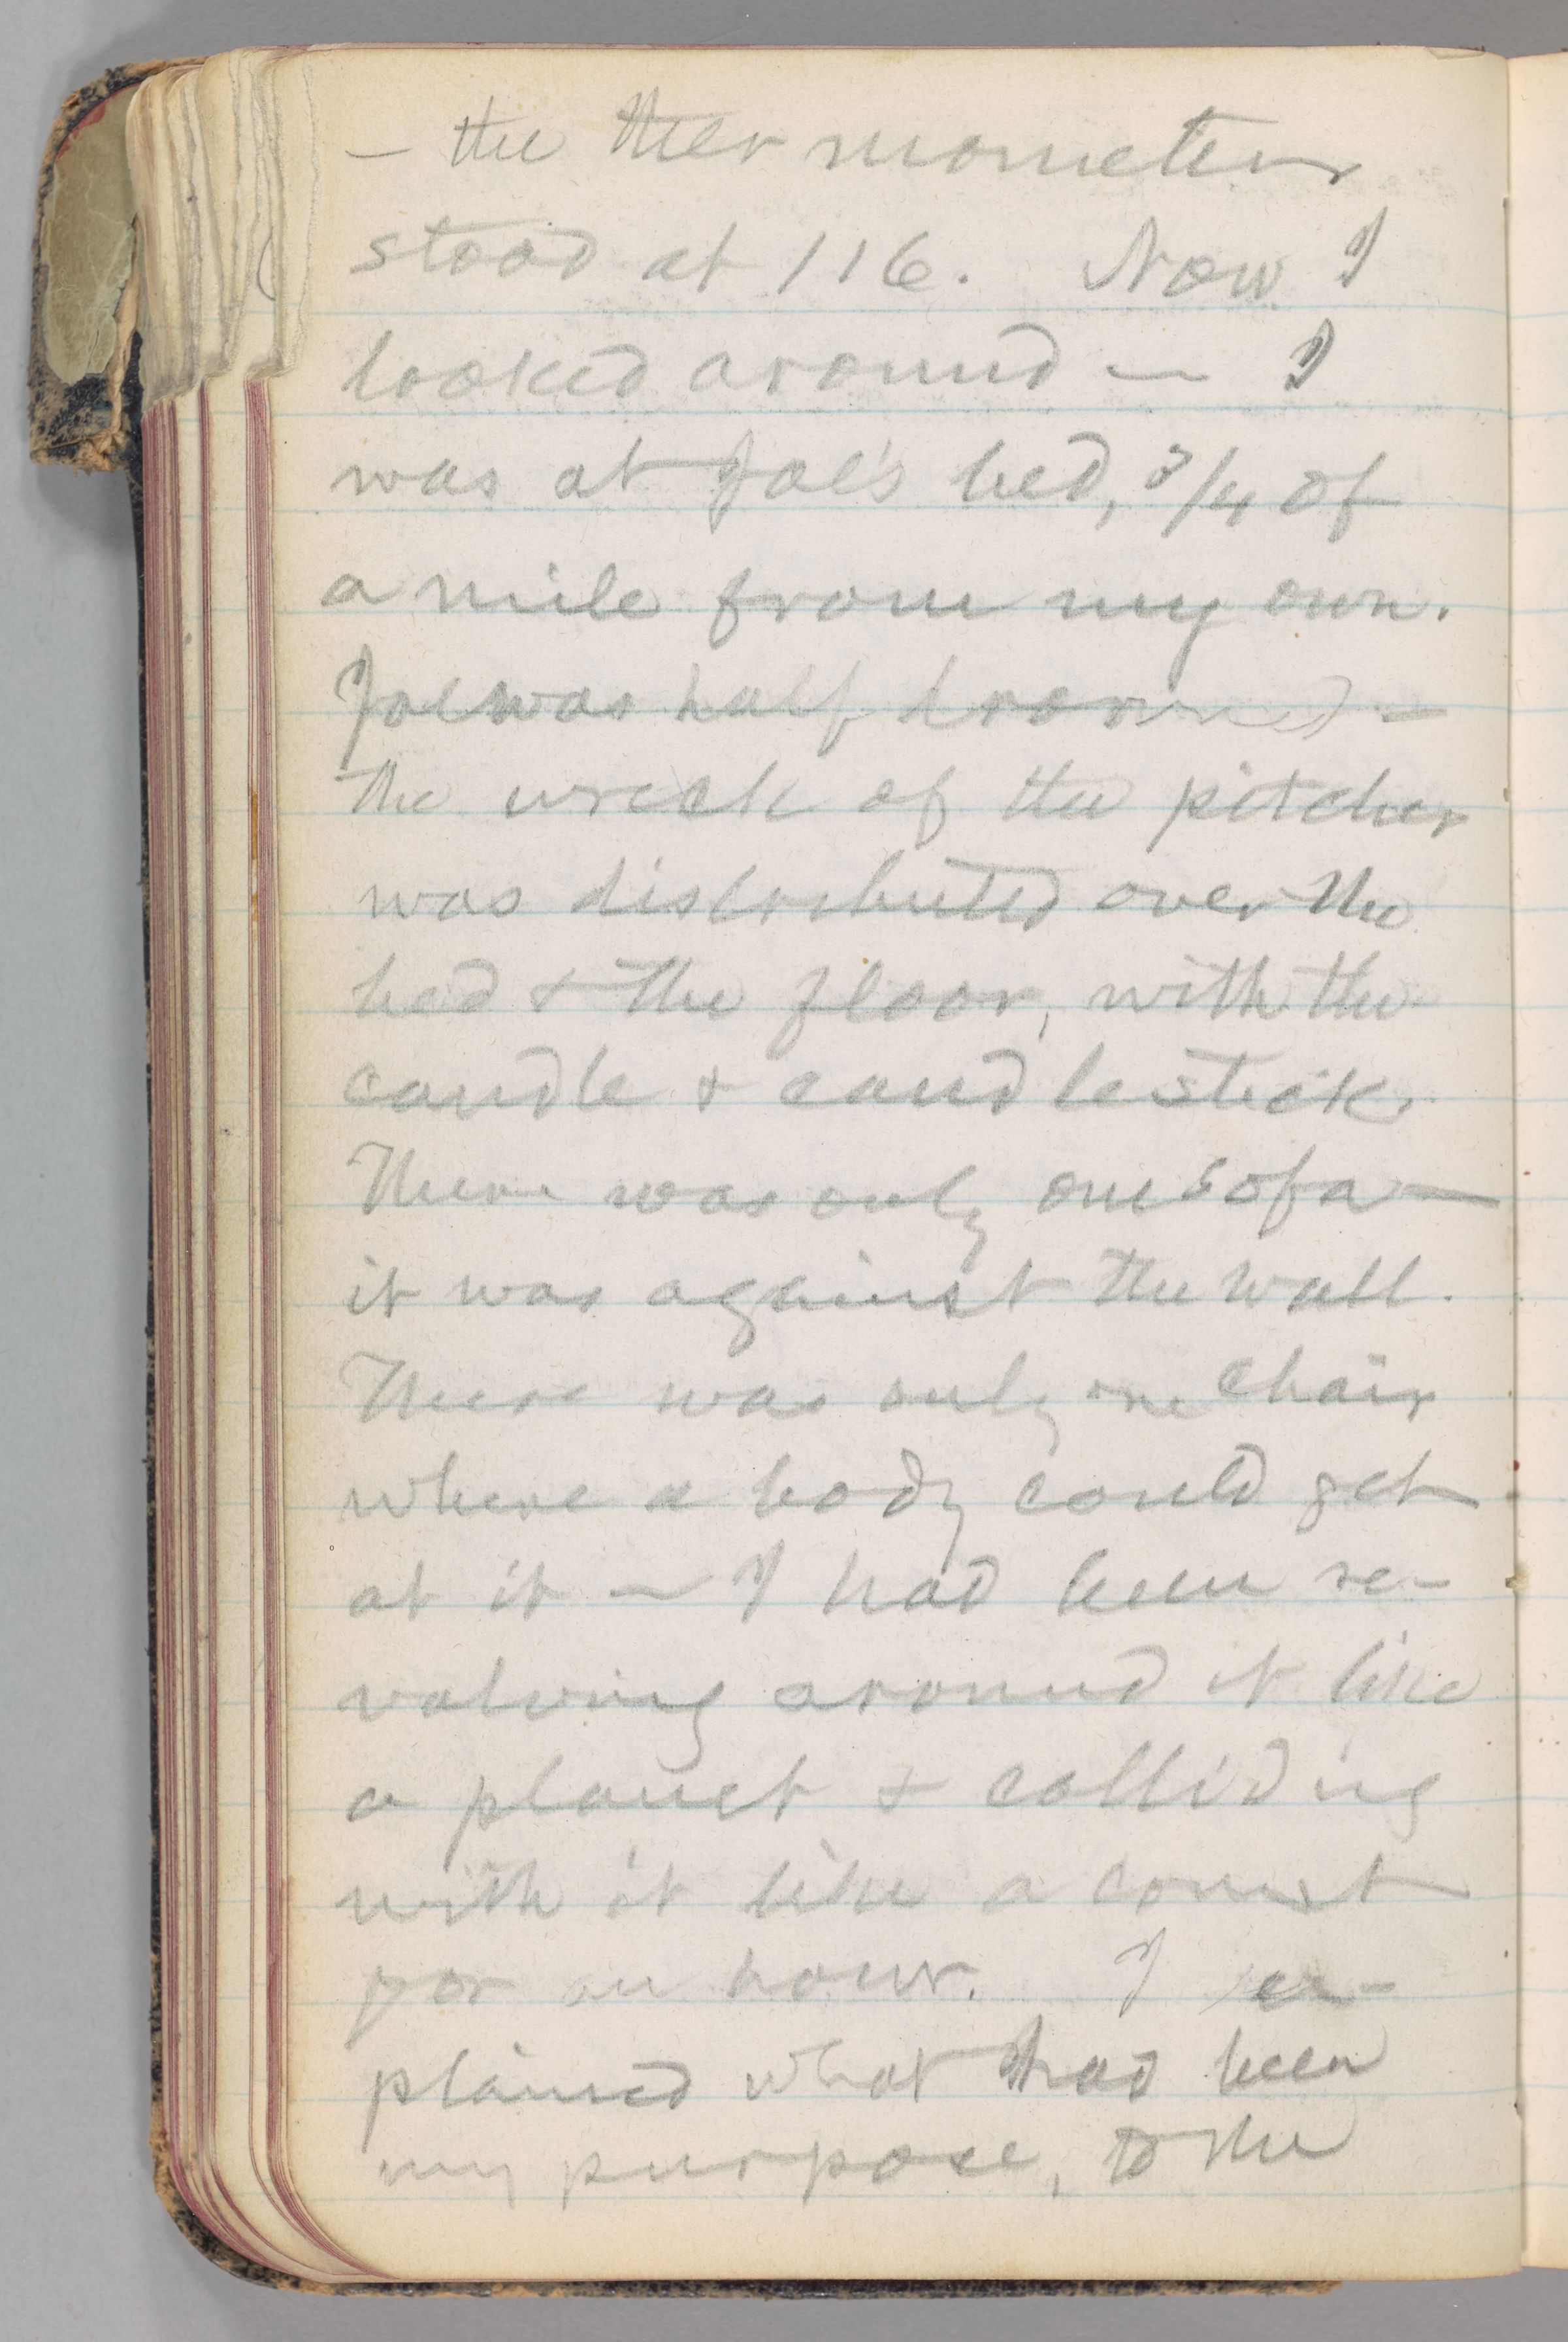 — the thermometer
stood at 116. Now I
looked around — I
was at Joe's bed, 3/4 of
a mile from my own.
Joe was half drowned —
the wreck of the pitcher
was distributed over the
bed & the floor, with the
candle & candlestick.
There was only one sofa —
it was against the wall.
There was only one chair
where a body could get
at it — I had been re-
volving around it like
a planet & colliding
with it like a comet
for an hour. I ex-
plained what had been
my purpose, to the